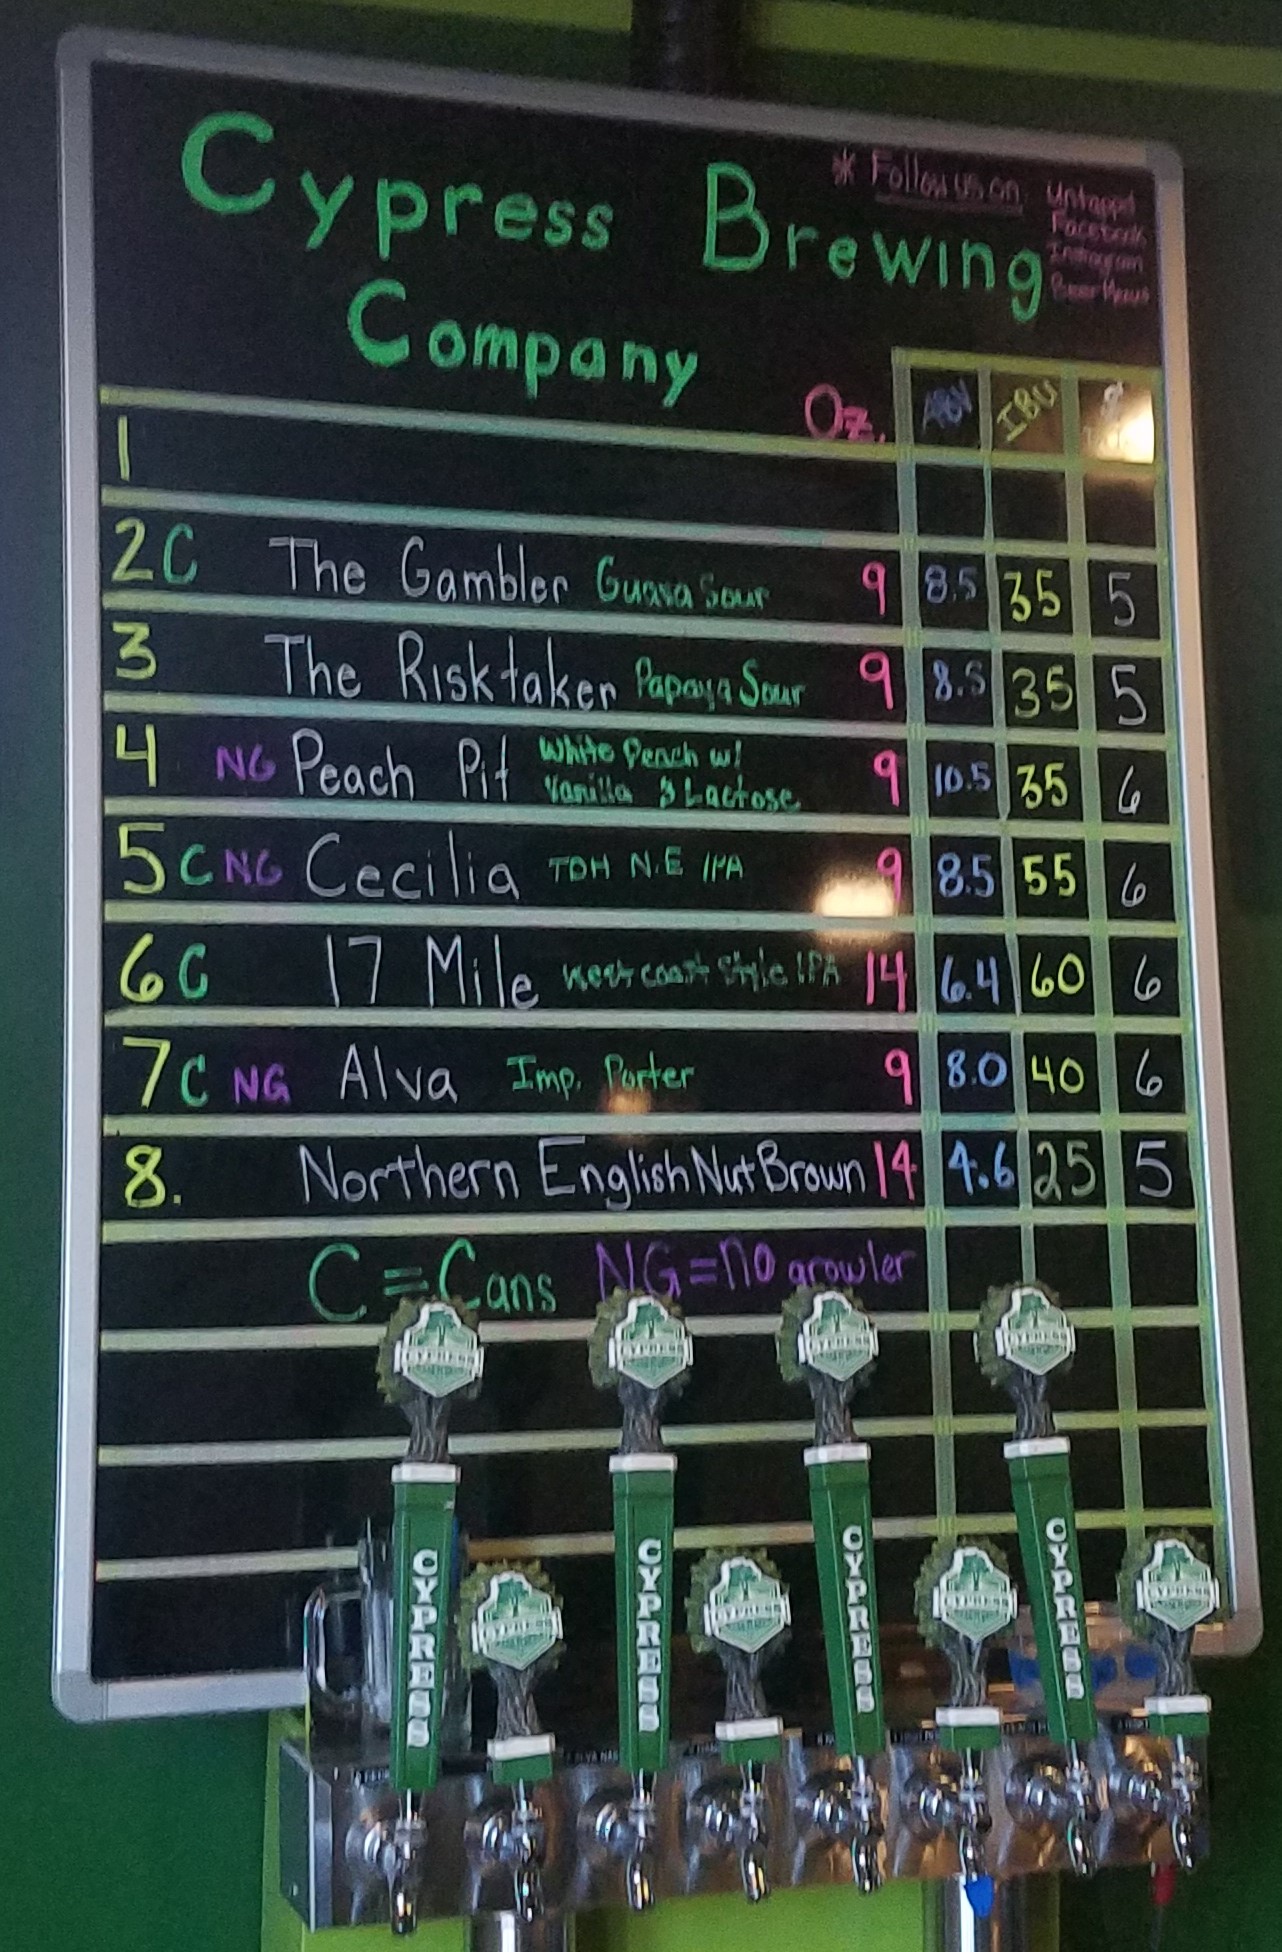 Cypress Brewing
Company
* Follow us on
Untappd
Facebook
Instagram
Beer Menus
Oz. ABV IBU $
1
2 C The Gambler Guava Sour 9 8.5 35 5
3 The Risktaker Papaya Sour 9 8.5 35 5
4 NG Peach Pit White Peach w/ Vanilla & Lactose 9 10.5 35 6
5 C NG Cecilia TDH N.E IPA 9 8.5 55 6
6 C 17 Mile West coast Style IPA 14 6.4 60 6
7 C NG Alva Imp. Porter 9 8.0 40 6
8. Northern English Nut Brown 14 4.6 25 5
C = Cans NG = no growler
CYPRESS
CYPRESS
CYPRESS
CYPRESS
CYPRESS
CYPRESS
CYPRESS
CYPRESS
CYPRESS
CYPRESS
CYPRESS
CYPRESS